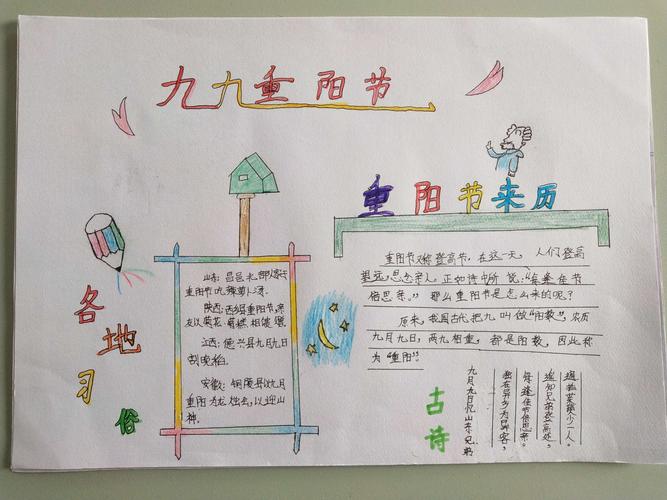 九九重阳节
各地习俗
山东：昌邑北部
重阳节吃辣萝卜汤。
陕西：西乡重阳节，亲
友以菊花、糕相馈赠
江西：德兴县九月九日
割晚稻。
安徽：铜陵县以九月
重阳为龙烛会，以迎山
神。
重阳节来历
重阳节又称登高节，在这一天，人们登高
望远，思念亲人，正如诗中所说："每逢佳节
倍思亲。"那么重阳节是怎么来的呢？
原来，我国古代把九叫做"阳数"，农历
九月九日，两九相重，都是阳数，因此称
为"重阳"
古诗
九月九日忆山东兄弟
独在异乡为异客，
每逢佳节倍思亲。
遥知兄弟登高处，
遍插茱萸少一人。